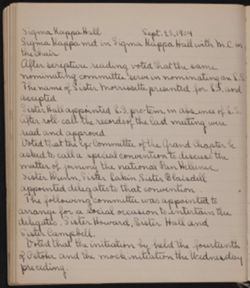 Sigma Kappa Hall Sept. 28, 1904
Sigma Kappa met in Sigma Kappa Hall with M.C. in
the chair
After scripture reading voted that the same
nominating committee serve in nominating an
The name of Sister Morrisette presented for and
accepted
Sister Hall appointed pro tem, in absence of
After roll call the records of the last meeting were
read and approved
Voted that the Ex Committee of the Grand chapter be
asked to call a special convention to discuss the
matter of joining the national Pan Hellenic.
Sister Winn, Sister Eakin, Sister Blaisdell
appointed delegates to that convention
The following committee was appointed to
arrange for a social occasion to entertain the
delegates, Sister Howard, Sister Hall and
Sister Campbell.
Voted that the initiation be held the fourteenth
of October and the mock initiation the Wednesday
preceding.